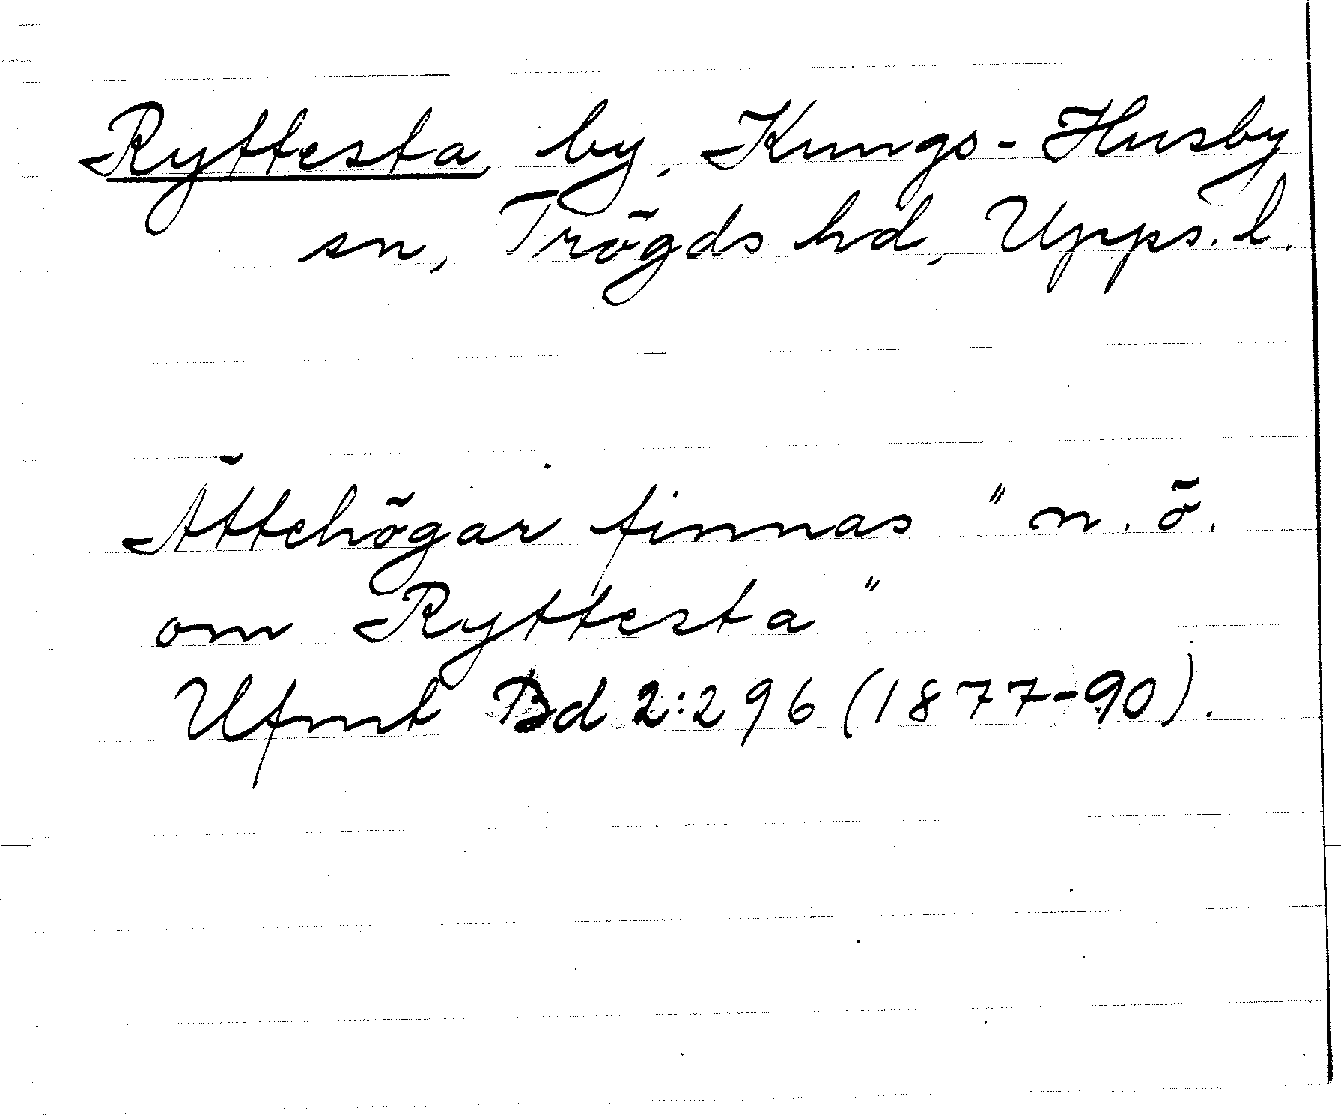 Ryttesta, by, Kungs-Husby
sn, Trögds hd, Upps. l.
Ättehögar finnas "n. ö.
om Ryttesta"
Ufmt Bd 2:296 (1877-90).